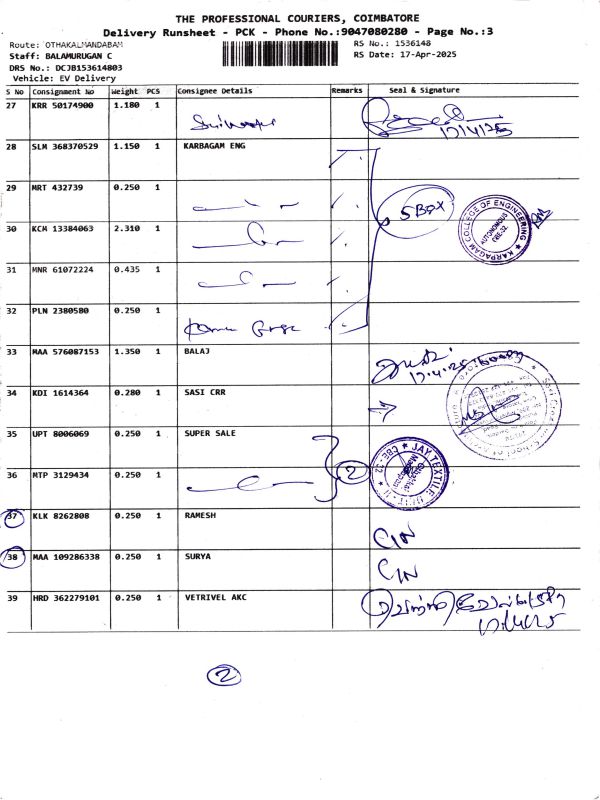 THE PROFESSIONAL COURIERS, COIMBATORE
Delivery Runsheet - PCK - Phone No.:9047080280 - Page No.:3
Route: OTHAKALMANDABAM
RS No.: 1536148
Staff: BALAMURUGAN C
RS Date: 17-Apr-2025
DRS No.: DCJB153614803
Vehicle: EV Delivery
S No Consignment No Weight PCS Consignee Details Remarks Seal & Signature
27 KRR 50174900 1.180 1
17/4/25
28 SLM 368370529 1.150 1 KARBAGAM ENG
29 MRT 432739 0.250 1
5 BOX
KARPAGAM COLLEGE OF ENGINEERING
AUTONOMOUS
CBE-32.
30 KCM 13384063 2.310 1
31 MNR 61072224 0.435 1
32 PLN 2380580 0.250 1
33 MAA 576087153 1.350 1 BALAJ
17.4.25
34 KDI 1614364 0.280 1 SASI CRR
35 UPT 8006069 0.250 1 SUPER SALE
36 MTP 3129434 0.250 1
2
JAY TEXTILE
CBE - 32
37 KLK 8262808 0.250 1 RAMESH
C/N
38 MAA 109286338 0.250 1 SURYA
C/N
39 HRD 362279101 0.250 1 VETRIVEL AKC
2